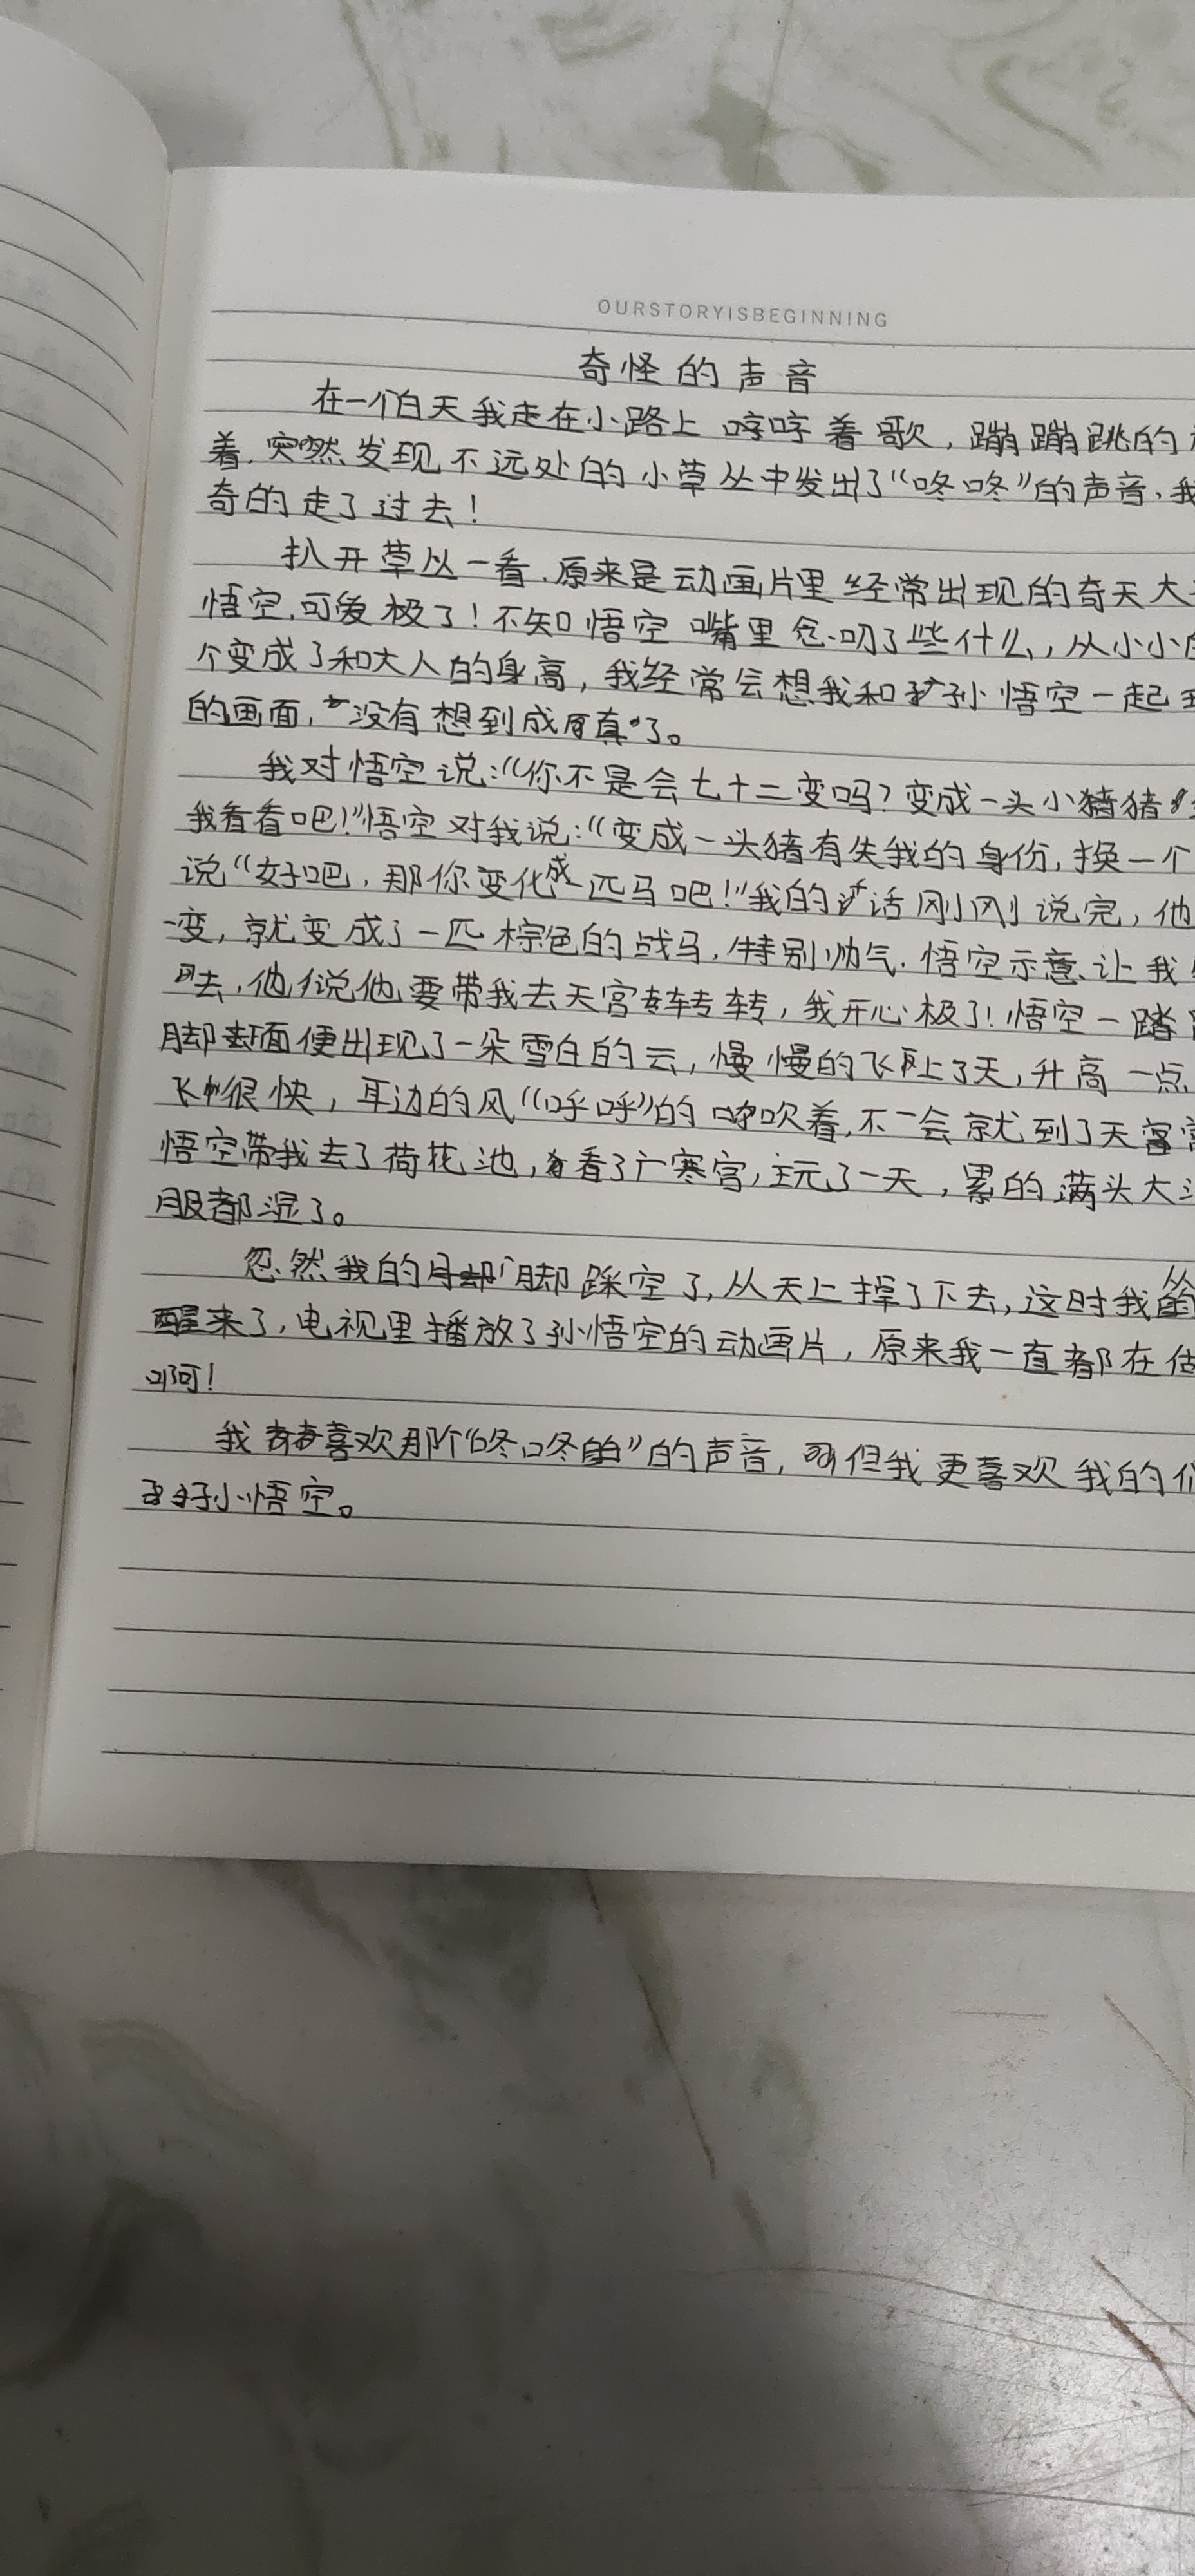 OURSTORYISBEGINNING
奇怪的声音
在一个白天我走在小路上哼哼着歌，蹦蹦跳的
着，突然发现不远处的小草丛中发出了“咚咚”的声音，我
奇的走了过去！
扒开草丛一看，原来是动画片里经常出现的奇天大
悟空，可爱极了！不知悟空嘴里念叨了些什么，从小小的
个变成了和大人的身高，我经常会想我和孙悟空一起
的画面，没有想到成真了。
我对悟空说：“你不是会七十二变吗？变成一头小猪猪
我看看吧！”悟空对我说：“变成一头猪有失我的身份，换一个
说“好吧，那你变化成一匹马吧！”我的话刚刚说完，他
一变，就变成了一匹棕色的战马，特别帅气．悟空示意让我
去，他说他要带我去天宫转转，我开心极了！悟空一踏
脚面便出现了一朵雪白的云，慢慢的飞上了天，升高一点
飞很快，耳边的风“呼呼”的吹着，不一会就到了天宫
悟空带我去了荷花池，看了广寒宫，玩了一天，累的满头大汗
服都湿了。
忽然我的脚踩空了，从天上掉了下去，这时我从
醒来了，电视里播放了孙悟空的动画片，原来我一直都在
啊！
我喜欢那个“咚咚”的声音，但我更喜欢我的
孙悟空。